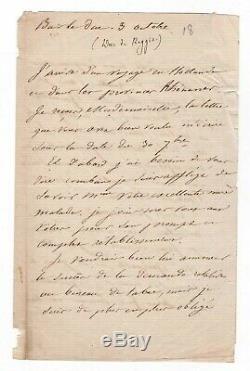 Bar le duc 3 octobre
18
(Duc de Reggio)
J'arrive d'un voyage en Hollande
et dans les provinces Rhénanes
Je reçois, Mademoiselle, la lettre
que vous avez bien voulu m'écrire
sous la date du 30 7bre
Et d'abord j'ai besoin de vous
dire combien je suis affligé de
savoir Mme votre excellente mère
malade, je
pour son prompt et
complet rétablissement.
Je voudrais bien lui annoncer
le succès de la demande relative
au bureau de tabac, mais je
suis de plus en plus obligé